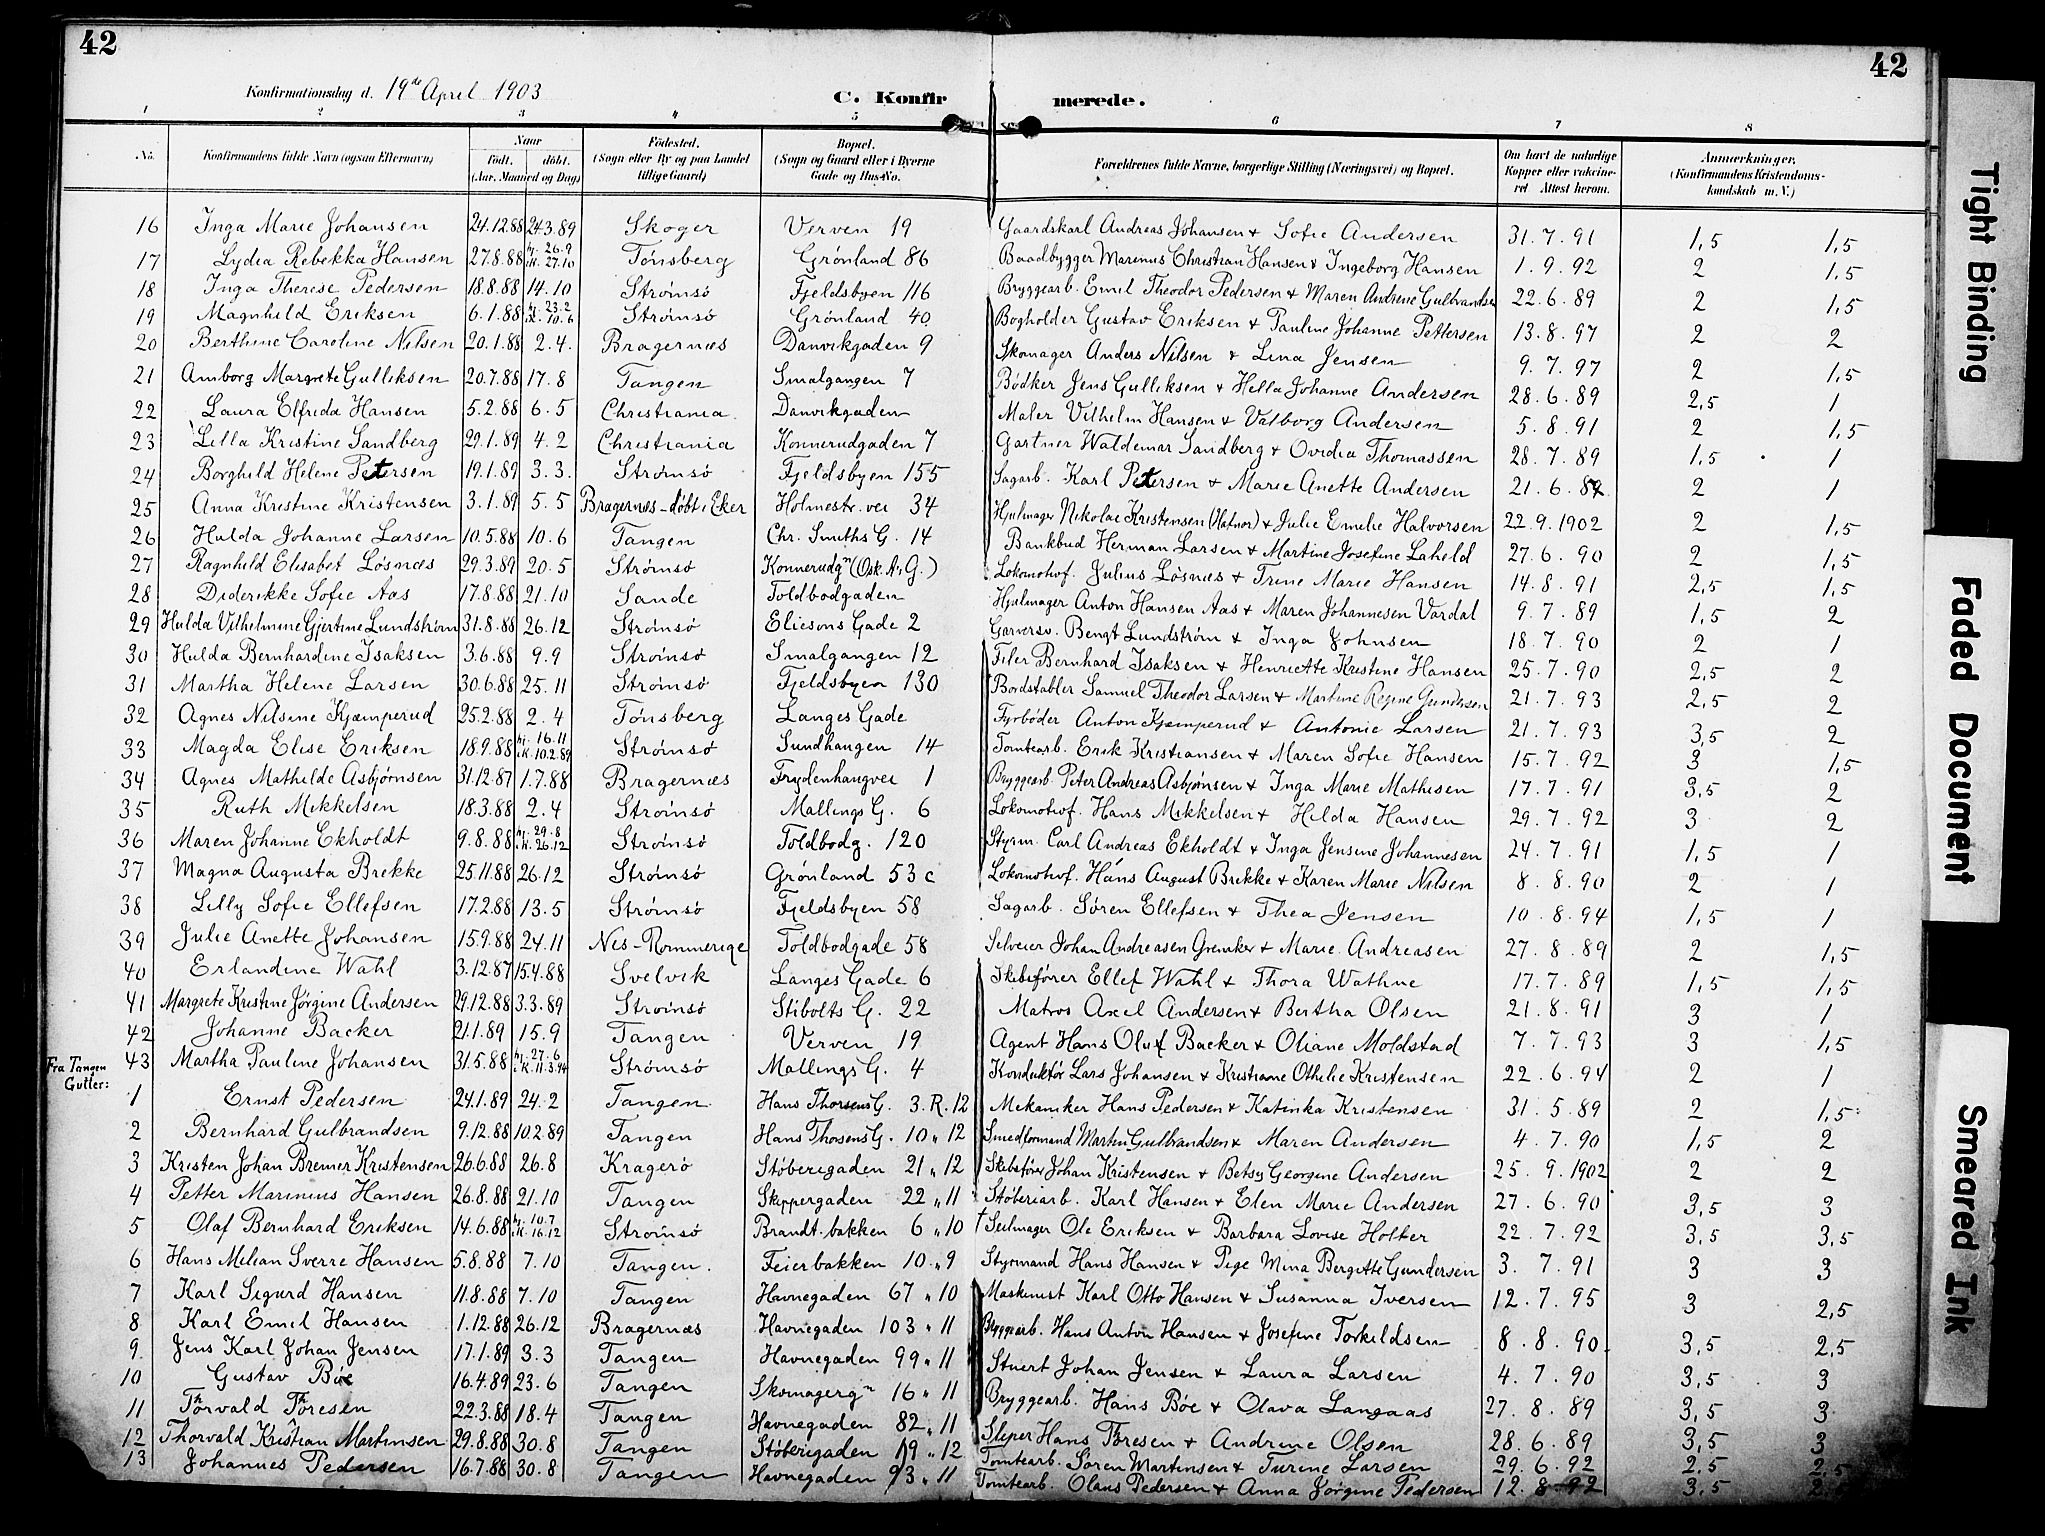 42
42
Konfirmationsdag d. 19de April 1903
C. Konfir merede.
1 2 3 4 5 6 7 8
No. Konfirmandens fulde Navn (ogsaa Efternavn) Naar født. døbt. (Aar, Maaned og Dag) Fødested. (Sogn eller By og paa Landet tillige Gaard) Bopæl. (Sogn og Gaard eller i Byerne Gade og Hus-No. Forældrenes fulde Navne, borgerlige Stilling (Næringsvei) og Bopæl. Om havt de naturlige Kopper eller vaccineret Attest herom. Anmærkninger, (Konfirmandens Kristendomskundskab m. V.)
16 Inga Marie Johansen 24.12.88 24.3.89 Skoger Verven 19 Gaardskarl Andreas Johansen + Sofie Andersen 31.7.91 1,5 1,5
17 Lydia Rebekka Hansen 27.8.88 hj. 26.9 i K. 27.10 Tönsberg Grønland 86 Baadbygger Marinus Christian Hansen + Ingeborg Hansen 1.9.92 2 1,5
18 Inga Therese Pedersen 18.8.88 14.10 Strømsö Fjeldsbyen 116 Bryggearb. Emil Theodor Pedersen + Maren Andrene Gulbrandsen 22.6.89 2 1,5
19 Magnhild Eriksen 6.1.88 hj. 23.2 i K. 10.6 Strømsö Grønland 40 Bogholder Gustav Eriksen + Pauline Johanne Pettersen 13.8.97 2 2
20 Berthine Caroline Nilsen 20.1.88 2.4. Bragernæs Danvikgaden 9 Skomager Anders Nilsen + Lina Jensen 9.7.97 2 1,5
21 Amborg Margrete Gulliksen 20.7.88 17.8 Tangen Smalgangen 7 Bødker Jens Gulliksen + Hella Johanne Andersen 28.6.89 2,5 1
22 Laura Elfrida Hansen 5.2.88 6.5 Christiania. Danvikgaden Maler Vilhelm Hansen + Valborg Andersen 5.8.91 2 1,5
23 Lilla Kristine Sandberg 29.1.89 4.2 Christiania Konnerudgaden 7 Gartner Waldemar Sandberg + Ovidia Thomassen 28.7.89 1,5 1
24 Borghild Helene Petersen 19.1.89 3.3. Strømsö Fjeldsbyen 155 Sagarb. Karl Petersen + Marie Anette Andersen 21.6.8 2 1
25 Anna Kristine Kristensen 3.1.89 5.5 Bragernæs - døbt i Eker Holmestr. vei 34 Hjulmager Nikolai Kristensen + Julie Emilie Halvorsen 22.9.1902 2 1,5
26 Hulda Johanne Larsen 10.5.88 10.6 Tangen Chr. Smiths G. 14 Bankbud Herman Larsen + Martine Josefine Laheld 27.6.90 2 1,5
27 Ragnhild Elisabet Løsnæs 29.3.89 20.5 Strømsö Konnerudgn (Osk. A. G.) Lokomotivf. Julius Løsnæs + Trine Marie Hansen 14.8.91 2,5 1,5
28 Diderikke Sofie Aas 17.8.88 21.10 Sande Toldbodgaden Hjulmager Anton Hansen Aas + Maren Johannesen Vardal 9.7.89 1,5 2
29 Hulda Vilhelmine Gjertine Lundstrøm 31.8.88 26.12 Strømsö Eliesons Gade 2 Garversv. Bengt Lundstrøm + Inga Johnsen 18.7.90 2 1
30 Hulda Bernhardine Isaksen 3.6.88 9.9 Strømsö Smalgangen 12 Filer Bernhard Isaksen + Henriette Kristine Hansen 25.7.90 2,5 2
31 Martha Helene Larsen 30.6.88 25.11 Strømsö Fjeldsbyen 130 Bordstabler Samuel Theodor Larsen + Martine Regine Gundersen 21.7.93 2,5 2
32 Agnes Nilsine Kjæmperud 25.2.88 2.4 Tönsberg Langes Gade Fyrbøder Anton Kjæmperud + Antonie Larsen 21.7.93 3,5 2
33 Magda Elise Eriksen 18.9.88 hj. 16.11 i K. 10.2.89 Strømsö Sundhaugen 14 Tomtearb. Erik Kristiansen + Maren Sofie Hansen 15.7.92 3 1,5
34 Agnes Mathilde Asbjørnsen 31.12.87 1.7.88 Bragernæs Frydenhaugvei 1 Bryggearb. Peter Andreas Asbjørnsen + Inga Marie Mathisen 17.7.91 3,5 2
35 Ruth Mikkelsen 18.3.88 2.4 Strømsö Mallings G. 6 Lokomotivf. Hans Mikkelsen + Hilda Hansen 29.7.92 3 2
36 Maren Johanne Ekholdt 9.8.88 hj. 29.8 i K. 26.12 Strømsö Toldbodg. 120 Styrm. Carl Andreas Ekholdt + Inga Jensine Johannesen 24.7.91 1,5 1
37 Magna Augusta Brekke 25.11.88 26.12 Strømsö Grønland 53 c Lokomotivf. Hans August Brekke + Karen Marie Nilsen 8.8.90 2 1
38 Lilly Sofie Ellefsen 17.2.88 13.5 Strømsö Fjeldsbyen 58 Sagarb. Søren Ellefsen + Thea Jensen 10.8.94 1,5 1
39 Julie Anette Johansen 15.9.88 24.11 Nes-Rommerige Toldbodgade 58 Johan Andreasen + Marie Andreasen 27.8.89 2 1,5
40 Erlandine Wahl 3.12.87 15.4.88 Svelvik Langes Gade 6 Skibsfører Ellef Wahl + Thora Wathne 17.7.89 1,5 1,5
41 Margrete Kristine Jørgine Andersen 29.12.88 3.3.89 Strømsö Stibolts G. 22 Matros Axel Andersen + Bertha Olsen 21.8.91 3 1
42 Johanne Backer 21.1.89 15.9 Tangen Verven 19 Agent Hans Oluf Backer + Oliane Moldstad 7.7.93 3 1,5
43 Martha Pauline Johansen 31.5.88 hj. 27.6 i K. 11.3.94 Strømsö Mallings G. 4 Konduktør Lars Johansen + Kristiane Othilie Kristensen 22.6.94 2 1
Fra Tangen
Gutter:
1 Ernst Pedersen 24.1.89 24.2 Tangen Hans Thorsens G. 3. R. 12 Mekaniker Hans Pedersen + Katinka Kristensen 31.5.89 2 1,5
2 Bernhard Gulbrandsen 9.12.88 10.2.89 Tangen Hans Thosens G. 10 " 12 Smedformand Martin Gulbrandsen + Maren Andersen 4.7.90 1,5 2
3 Kristen Johan Bremer Kristensen 26.6.88 26.8 Kragerö Støberigaden 21 " 12 Skibsfører Johan Kristensen + Betsy Georgine Andersen 25.9.1902 2 2
4 Petter Marinius Hansen 26.8.88 21.10 Tangen Skippergaden 22 " 11 Støberiarb. Karl Hansen + Elen Marie Andersen 27.6.90 3,5 3
5 Olaf Bernhard Eriksen 14.6.88 hj. 10.7 i K. 16.12 Strømsö Brandt. bakken 6 " 10 + Seilmager Ole Eriksen + Barbara Lovise Holter 22.7.92 3,5 3,5
6 Hans Milian Sverre Hansen 5.8.88 7.10 Tangen. Feierbakken 10 " 9 Styrmand Hans Hansen + Pige Mina Bergitte Gundersen 3.7.91 3 3
7 Karl Sigurd Hansen 11.8.88 7.10 Tangen Havnegaden 67 " 10 Maskinist Karl Otto Hansen + Susanna Iversen 12.7.95 3 2,5
8 Karl Emil Hansen 1.12.88 26.12 Bragernæs Havnegaden 103 " 11 Bryggearb. Hans Anton Hansen + Josefine Torkildsen 8.8.90 3,5 2,5
9. Jens Karl Johan Jensen 17.1.89 3.3 Tangen Havnegaden 99 " 11 Stuert Johan Jensen + Laura Larsen 4.7.90 3,5 3
10 Gustav Bøe 16.4.89 23.6 Tangen Skomagergn 16 " 11 Bryggearb. Hans Bøe + Olava Langaas 27.8.89 3,5 3
11 Thorvald Thoresen 22.3.88 18.4 Tangen Havnegaden 82 " 11 Sliper Hans Thoresen + Andrine Olsen 28.6.89 3,5 3
12 Thorvald Kristian Martinsen 29.8.88 30.8 Tangen Støberigaden 19 " 12 Tomtearb. Søren Martinsen + Turine Larsen 29.6.92 2,5 2,5
13 Johannes Pedersen 16.7.88 30.8 Tangen Havnegaden 93 " 11 Tomtearb. Olaus Pedersen + Anna Jørgine Pedersen 12.8.92 3,5
Tight Binding
Faded Document
Smeared Ink